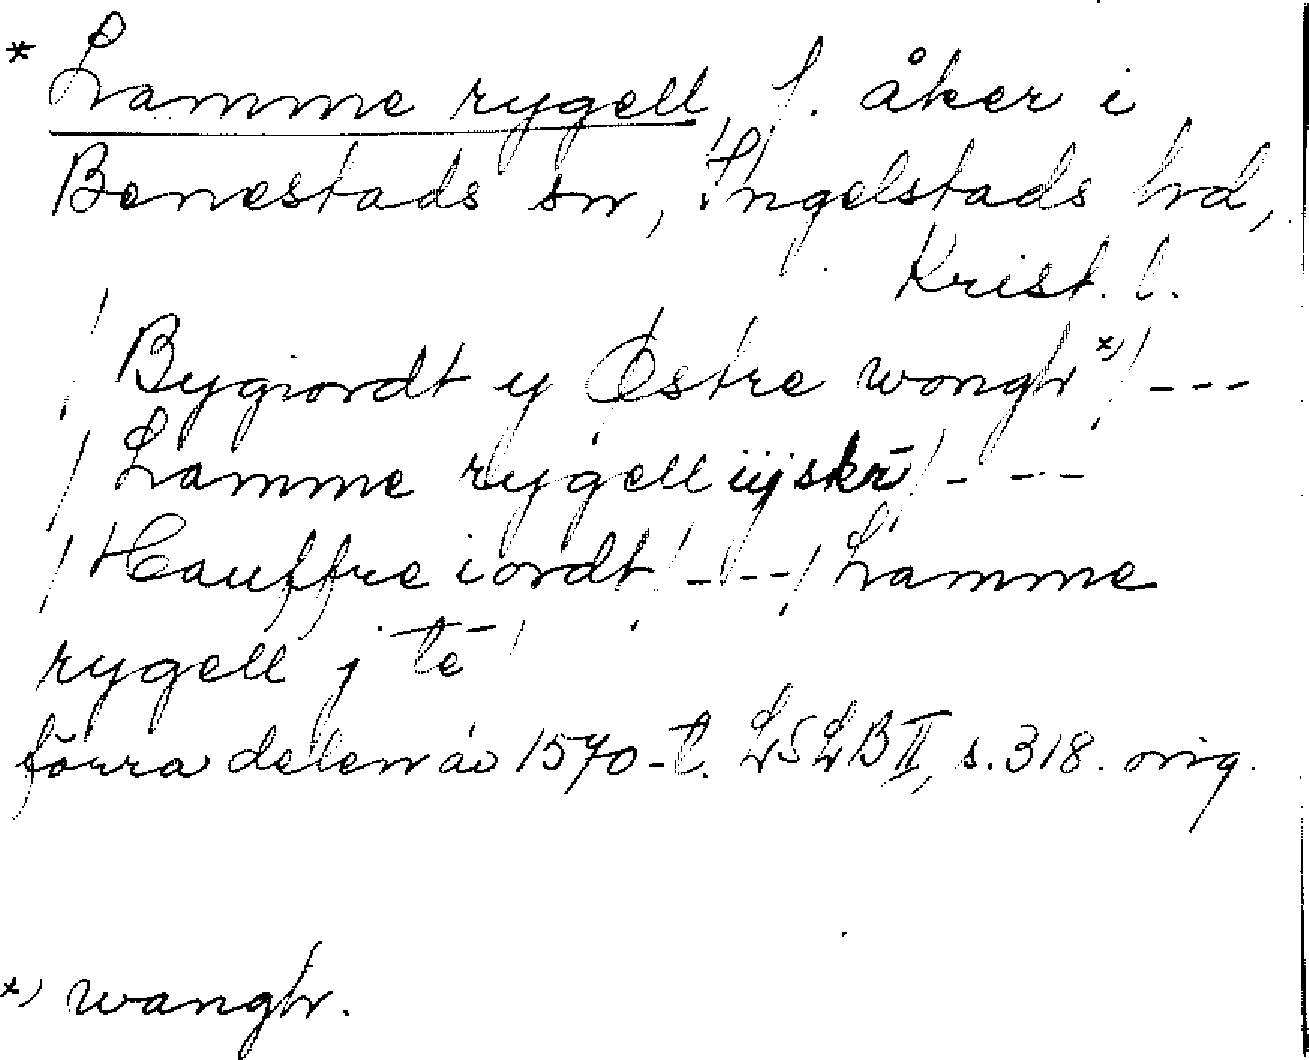 * Lamme rygell, f. åker i
Benestads sn, Ingelstads hd,
Krist. l.
/ Bygiordt y Østre wongh *) / - - -
/ Lamme rygell iij skr̄ / - - - -
/ Hauffre iordt / - - - / Lamme
rygell j tē /
förra delen av 1570-t. LSLB II, s. 318. orig.
*) wangh.